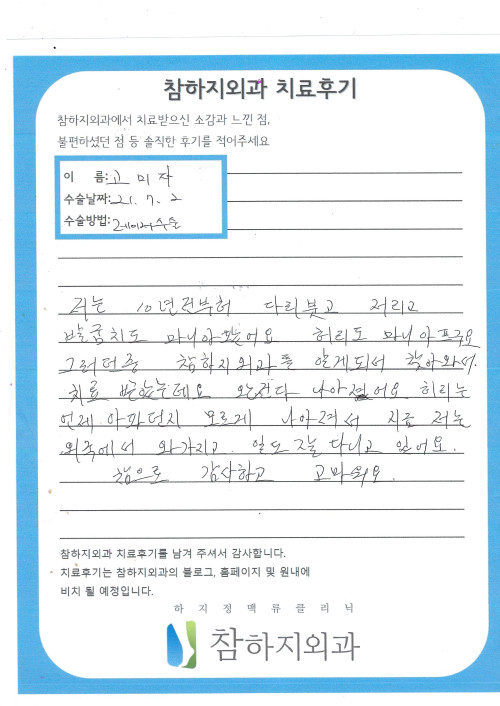 참하지외과 치료후기
참하지외과에서 치료받으신 소감과 느낀 점,
불편하셨던 점 등 솔직한 후기를 적어주세요
이 름: 고 미 자
수술날짜: 21. 7. 2
수술방법: 레이저수술
저는 10년전부허 다리붓고 저리고
발굼치도 마니아팠어요 허리도 마니아프구요
그러던중 참하지외과를 알게되서 찾아와서.
치료 받았는데요 완전다 나아졌어요. 허리는
언제 아파던지 모르게 나아져서 지금 저는
외국에서 와가지고. 일도 잘 다니고 있어요.
참으로 감사하고 고마워요.
참하지외과 치료후기를 남겨 주셔서 감사합니다.
치료후기는 참하지외과의 블로그, 홈페이지 및 원내에
비치 될 예정입니다.
하지정맥류클리닉
참하지외과